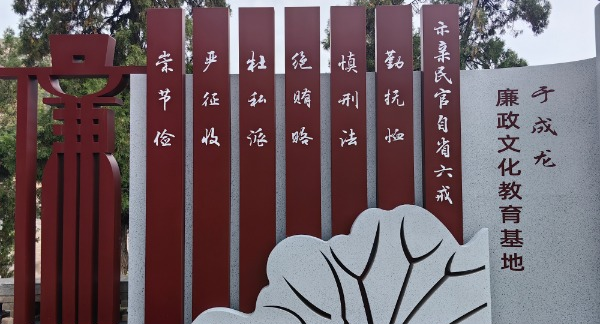 于成龙
廉政文化教育基地
示亲民官自省六戒
勤抚恤
慎刑法
绝贿赂
杜私派
严征收
崇节俭